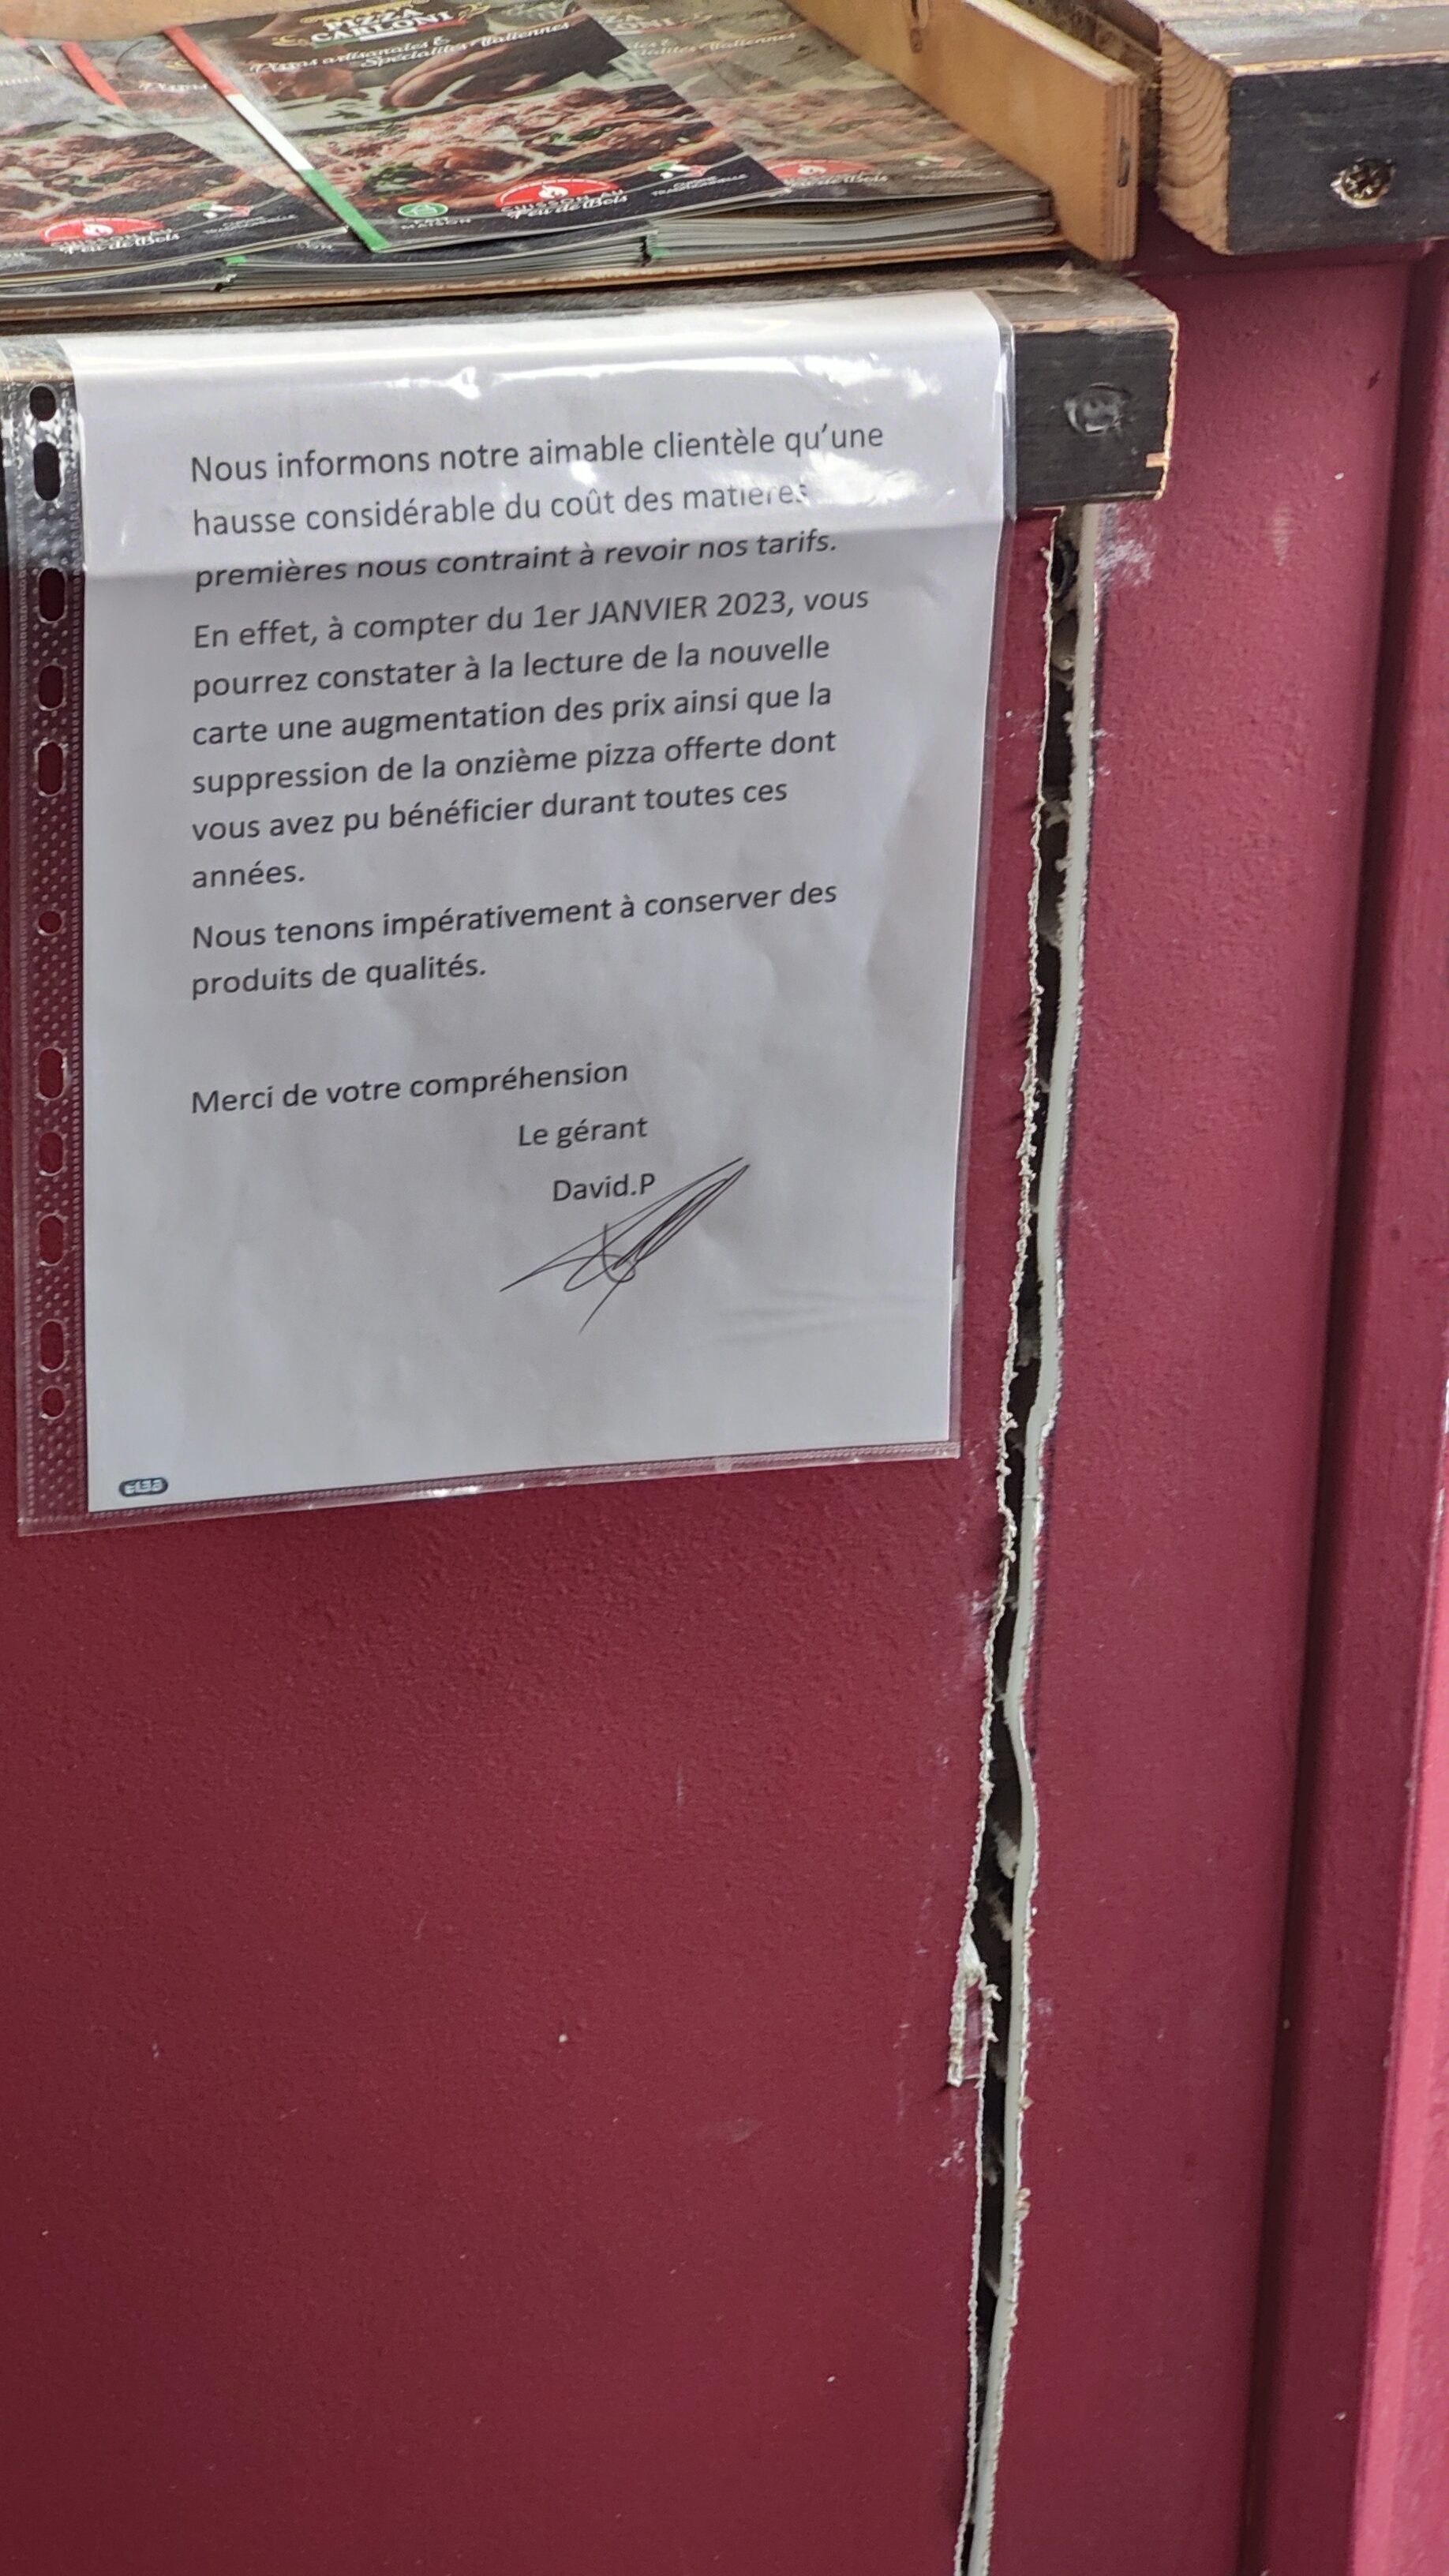 PIZZA
CARLONI
Pizzas artisanales &
Spécialités Italiennes
CUISSON AU
Feu de Bois
FAIT
MAISON
CUISSON AU
Feu de Bois
Nous informons notre aimable clientèle qu'une
hausse considérable du coût des matières
premières nous contraint à revoir nos tarifs.
En effet, à compter du 1er JANVIER 2023, vous
pourrez constater à la lecture de la nouvelle
carte une augmentation des prix ainsi que la
suppression de la onzième pizza offerte dont
vous avez pu bénéficier durant toutes ces
années.
Nous tenons impérativement à conserver des
produits de qualités.
Merci de votre compréhension
Le gérant
David.P
ELBA